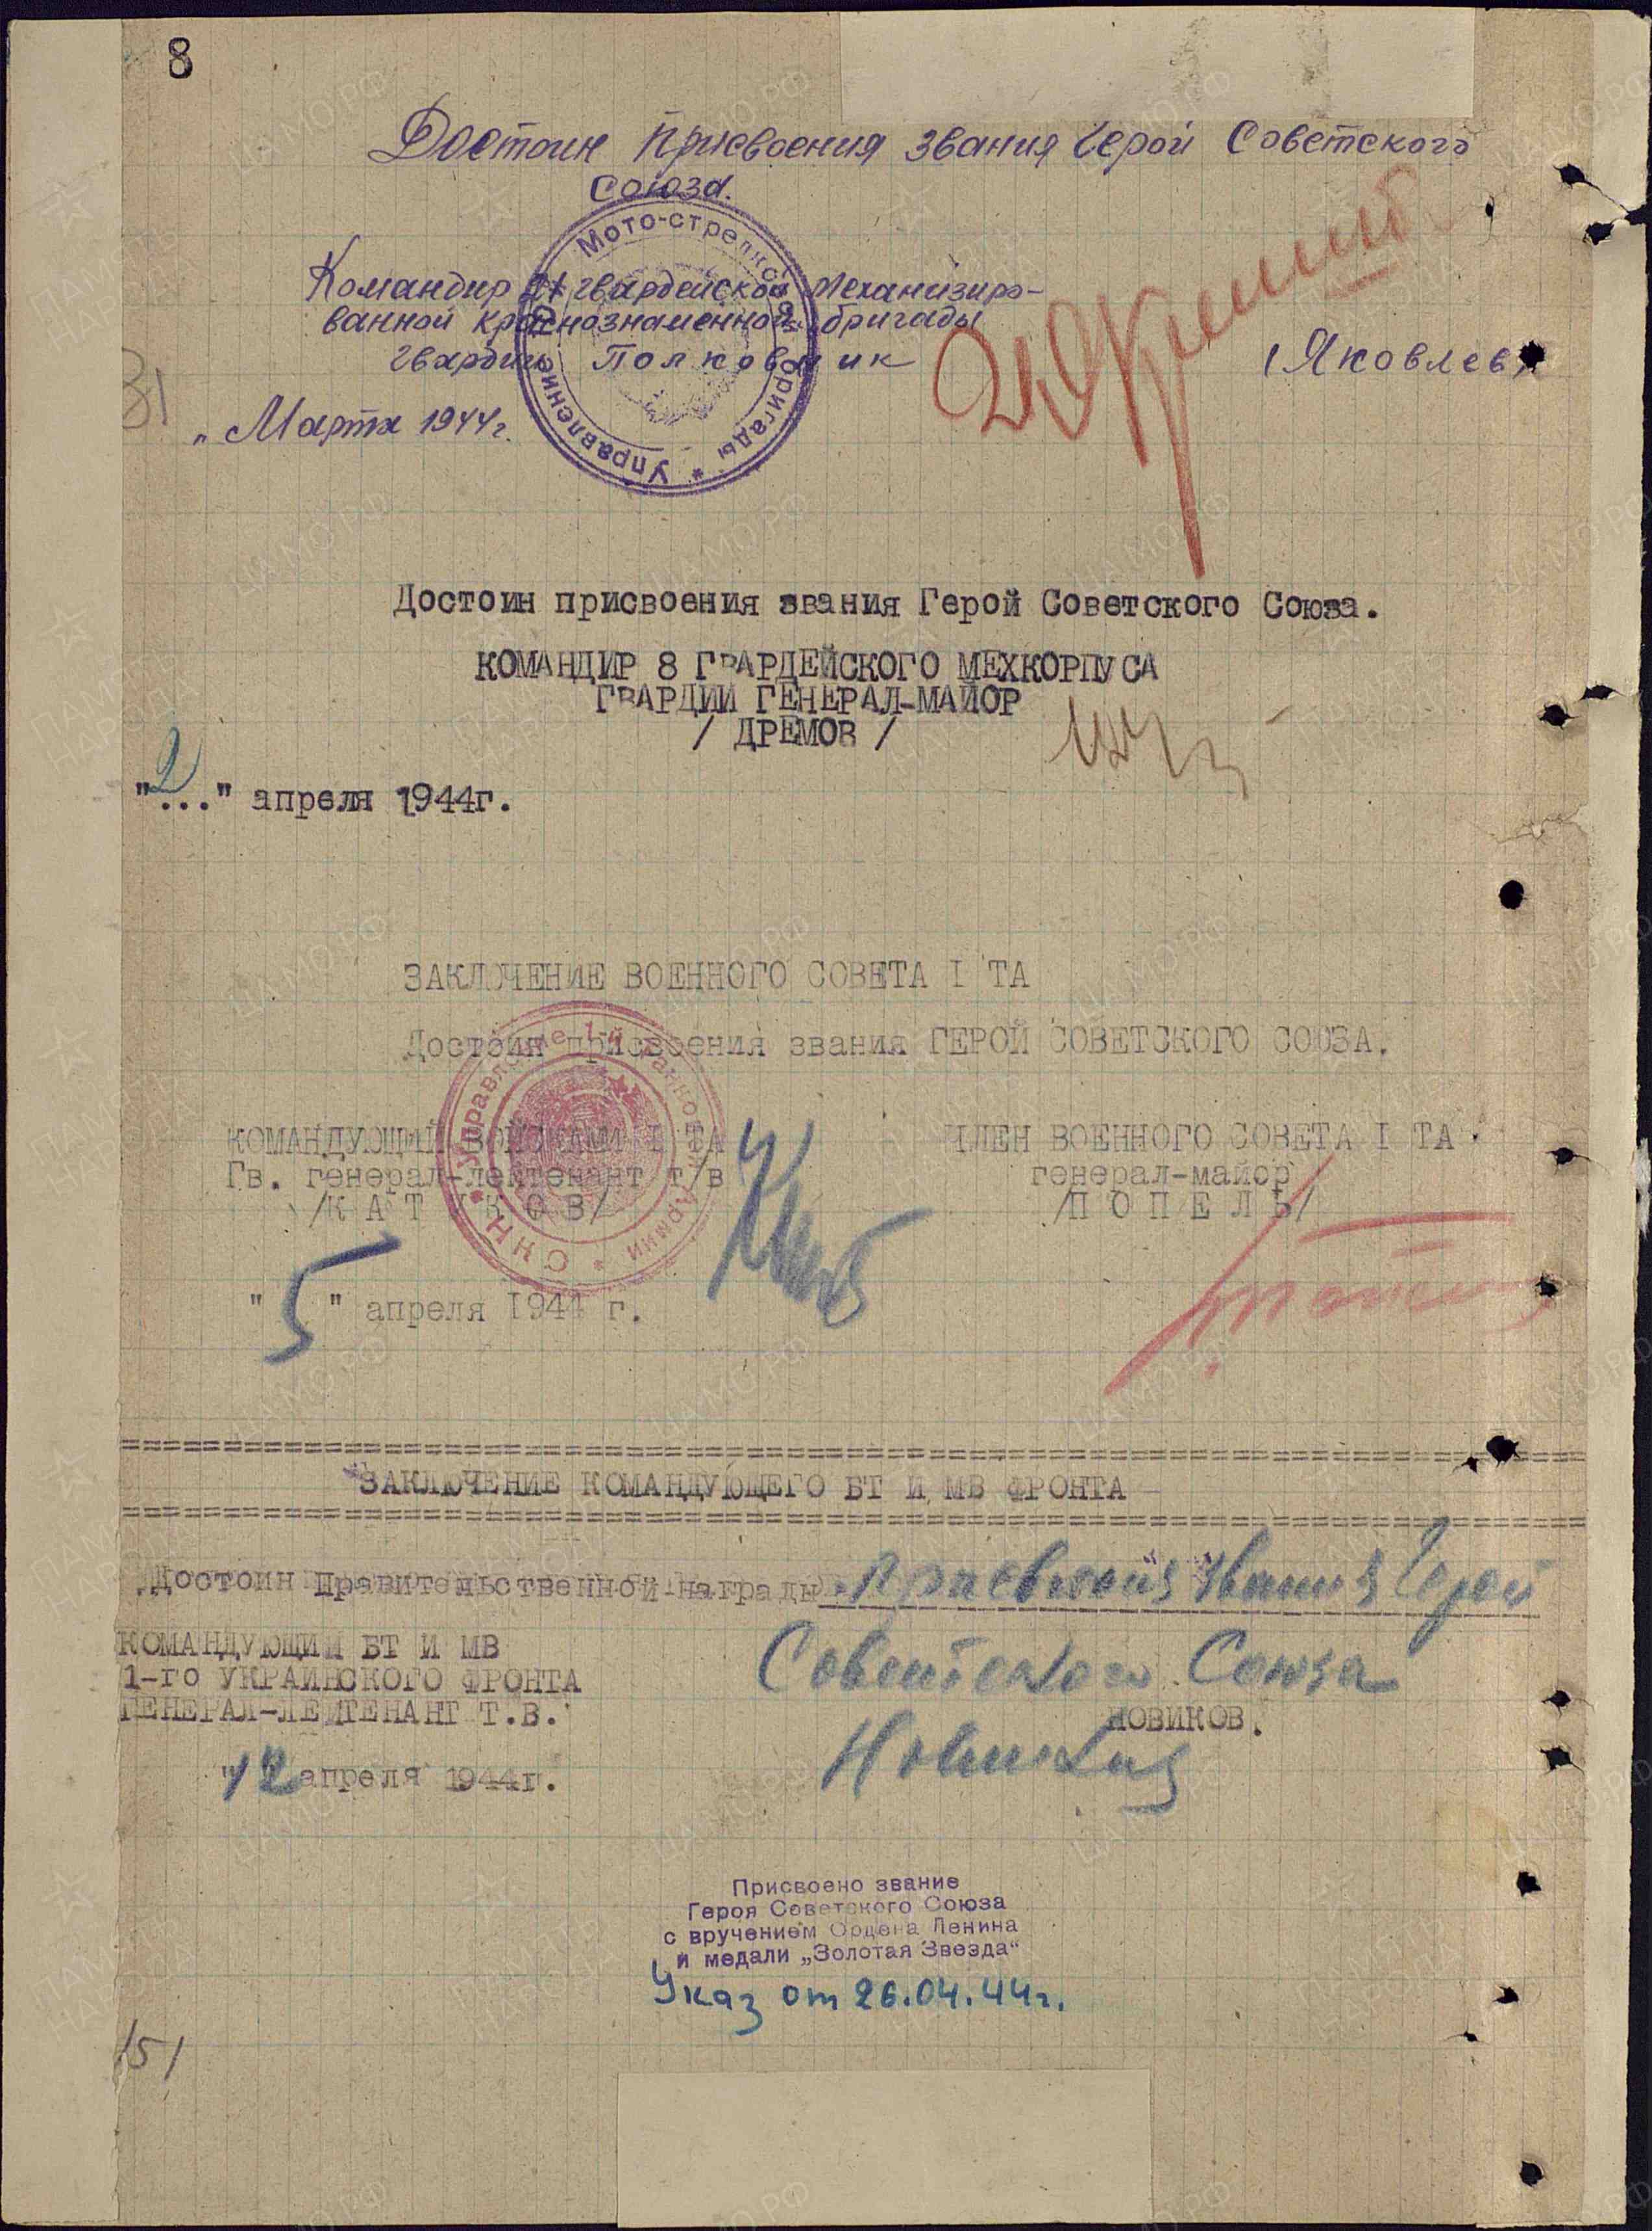 8
Достоин присвоения звания Герой Советского
Союза.
Командир 21 гвардейской Механизиро-
ванной краснознаменной бригады
гвардии Полковник
(Яковлев)
31
„ Марта 1944г.
Мото-стрелковой бригады * Управление
Достоин присвоения звания Герой Советского Союза.
КОМАНДИР 8 ГВАРДЕЙСКОГО МЕХКОРПУСА
ГВАРДИИ ГЕНЕРАЛ-МАЙОР
/ ДРЕМОВ /
"2..." апреля 1944г.
ЗАКЛЮЧЕНИЕ ВОЕННОГО СОВЕТА I ТА
Достоин присвоения звания ГЕРОЙ СОВЕТСКОГО СОЮЗА.
Управление 1-й Танковой Армии * СНН *
КОМАНДУЮЩИЙ ВОЙСКАМИ I ТА
Гв. генерал-лейтенант т/в
/К А Т У К О В/
ЧЛЕН ВОЕННОГО СОВЕТА I ТА
генерал-майор
/П О П Е Л Ь/
"5" апреля 1944 г.
ЗАКЛЮЧЕНИЕ КОМАНДУЮЩЕГО БТ И МВ ФРОНТА
Достоин Правительственной награды присвоения звания Герой
Советского Союза
КОМАНДУЮЩИЙ БТ И МВ
1-го УКРАИНСКОГО ФРОНТА
ГЕНЕРАЛ-ЛЕЙТЕНАНТ Т.В.
НОВИКОВ.
Новиков
"12 апреля 1944г.
Присвоено звание
Героя Советского Союза
с вручением Ордена Ленина
и медали „Золотая Звезда“
Указ от 26.04.44г.
151